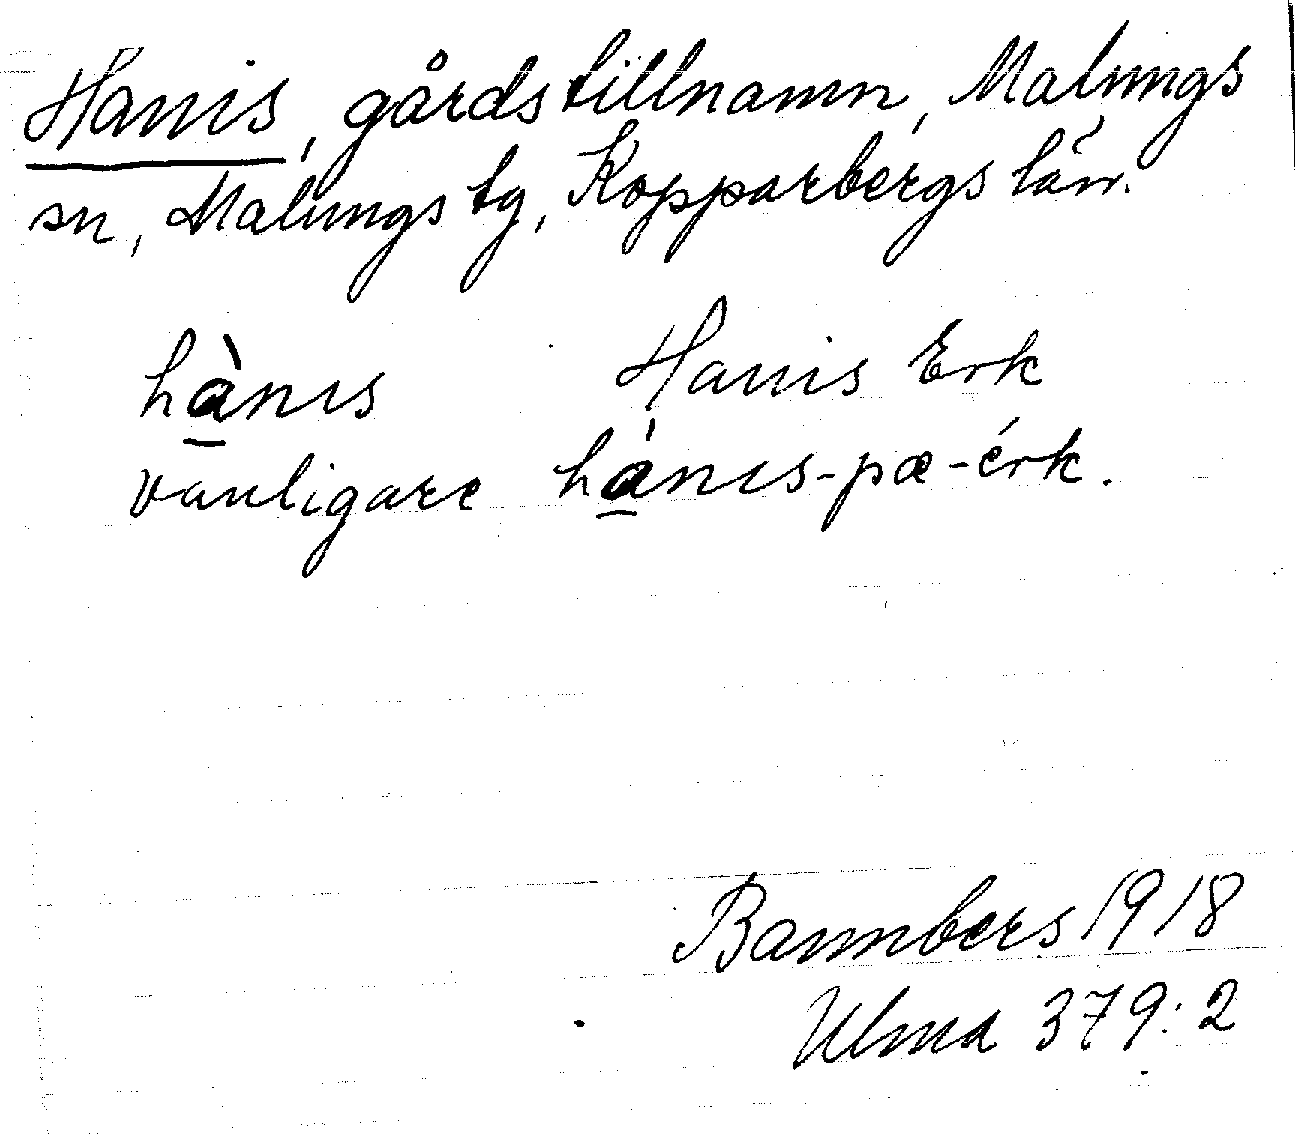 Hanis, gårdstillnamn, Malungs
sn, Malungs tg, Kopparbergs län.
hànıs Hanis Erk
vanligare hànıs-pæ-érk.
Bannbers 1918
Ulma 379:2